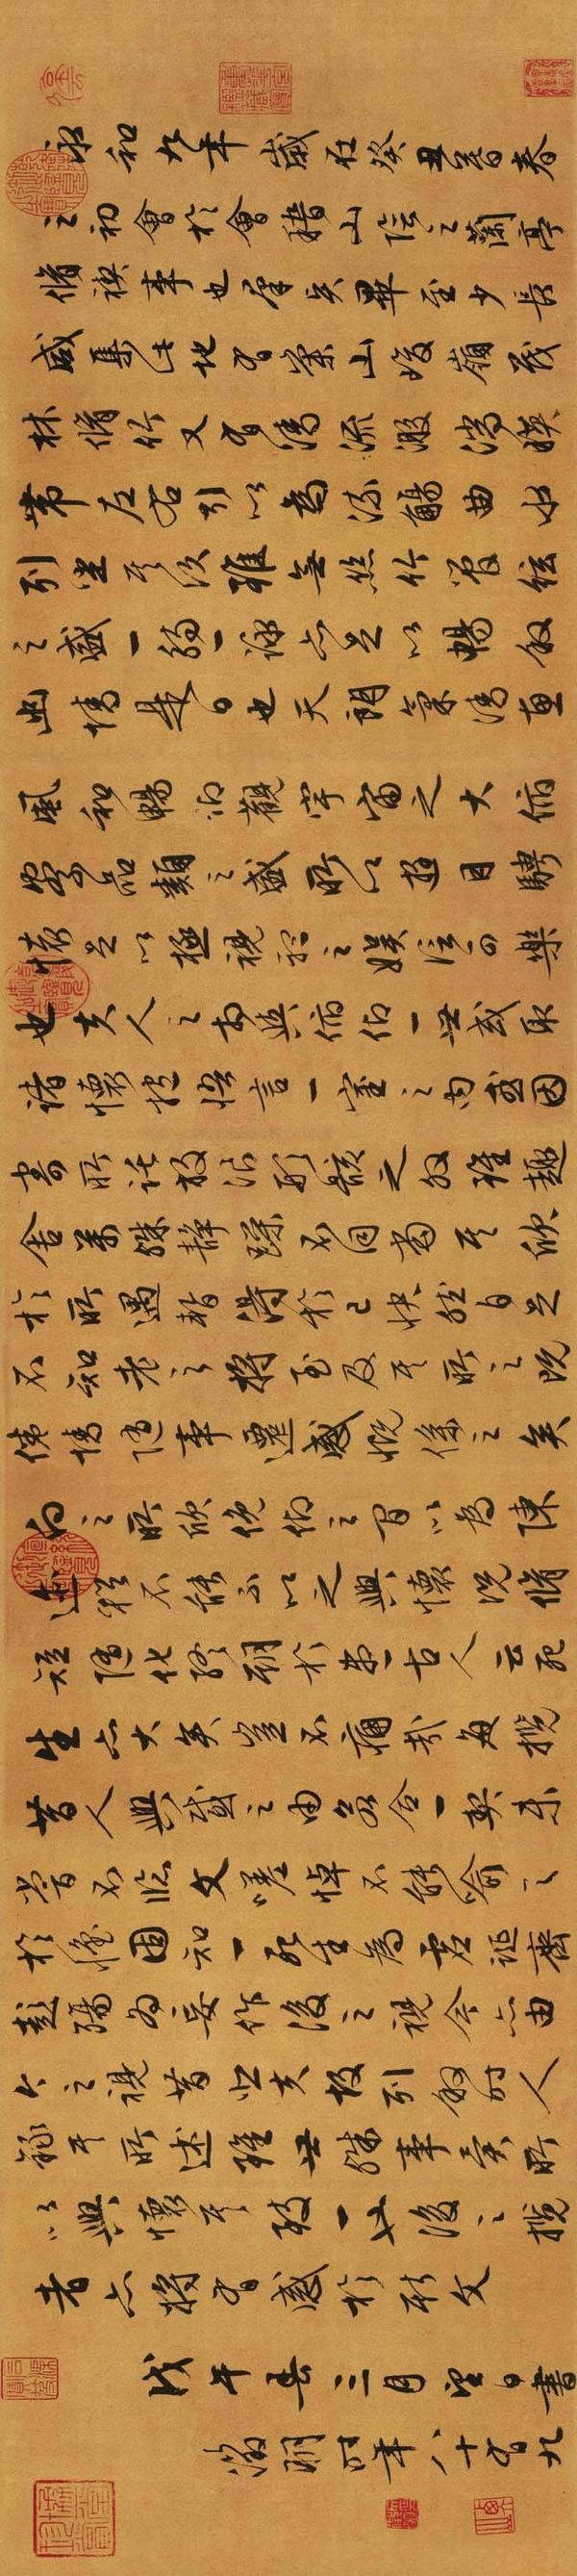 永和九年歲在癸丑暮春
之初會於會稽山陰之蘭亭
脩禊事也群賢畢至少長
咸集此地有崇山峻嶺茂
林脩竹又有清流激湍暎
帶左右引以為流觴曲水
列坐其次雖無絲竹管絃
之盛一觴一詠亦足以暢敘
幽情是日也天朗氣清惠
風和暢仰觀宇宙之大俯
察品類之盛所以遊目騁
懷足以極視聽之娛信可樂
也夫人之相與俯仰一世或取
諸懷抱悟言一室之內或因
寄所託放浪形骸之外雖趣
舍萬殊靜躁不同當其欣
於所遇暫得於己快然自足
不知老之將至及其所之既
惓情隨事遷感慨係之矣
向之所欣俛仰之間以為陳
迹猶不能不以之興懷況脩
短隨化終期於盡古人云死
生亦大矣豈不痛哉每攬
昔人興感之由若合一契未
嘗不臨文嗟悼不能喻之
於懷固知一死生為虛誕齊
彭殤為妄作後之視今亦由
今之視昔悲夫故列敘時人
錄其所述雖世殊事異所
以興懷其致一也後之攬
者亦將有感於斯文
戊午春三月望日書
徵明時年八十有九